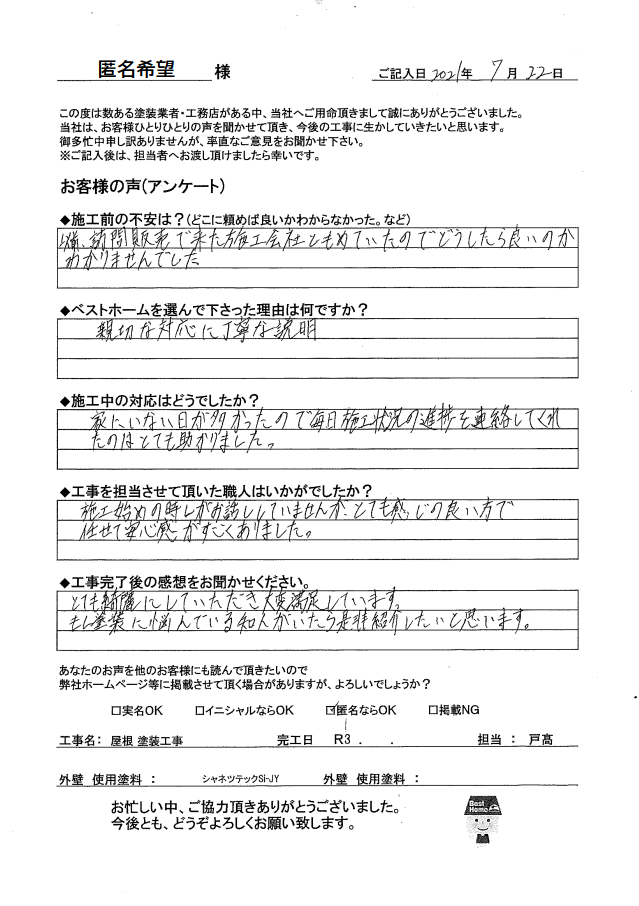 匿名希望 様
ご記入日 2021年 7月 22日
この度は数ある塗装業者・工務店がある中、当社へご用命頂きまして誠にありがとうございました。
当社は、お客様ひとりひとりの声を聞かせて頂き、今後の工事に生かしていきたいと思います。
御多忙中申し訳ありませんが、率直なご意見をお聞かせ下さい。
※ご記入後は、担当者へお渡し頂けましたら幸いです。
お客様の声(アンケート)
◆施工前の不安は?(どこに頼めば良いかわからなかった。など)
以前、訪問販売で来た施工会社ともめていたのでどうしたら良いのか
わかりませんでした
◆ベストホームを選んで下さった理由は何ですか?
親切な対応に丁寧な説明
◆施工中の対応はどうでしたか?
家にいない日が多かったので毎日施工状況の進捗を連絡してくれ
たのはとても助かりました。
◆工事を担当させて頂いた職人はいかがでしたか?
施工始めの時しかお話ししていませんが、とても感じの良い方で
任せて安心感がすごくありました。
◆工事完了後の感想をお聞かせください。
とても綺麗にしていただき大変満足しています。
もし塗装に悩んでいる知人がいたら是非紹介したいと思います。
あなたのお声を他のお客様にも読んで頂きたいので
弊社ホームページ等に掲載させて頂く場合がありますが、よろしいでしょうか?
□実名OK □イニシャルならOK ☑匿名ならOK □掲載NG
工事名: 屋根 塗装工事 完工日 R3 . . 担当 : 戸高
外壁 使用塗料 : シャネツテックSi-JY 外壁 使用塗料 :
お忙しい中、ご協力頂きありがとうございました。
今後とも、どうぞよろしくお願い致します。
Best
Home